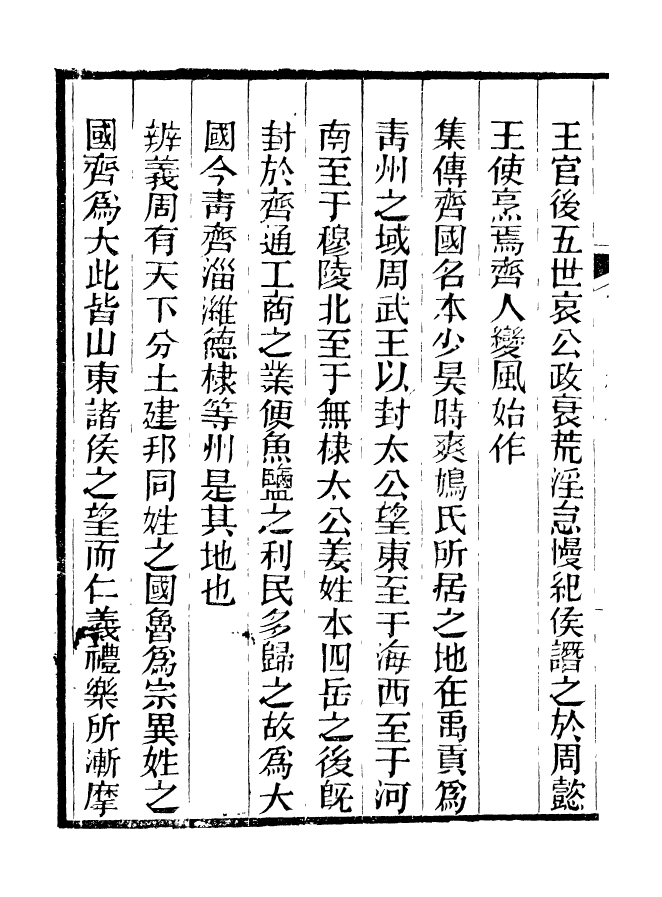 王官後五世哀公政衰荒淫怠慢紀侯譖之於周懿
王使烹焉齊人變風始作
集傳齊國名本少昊時爽鳩氏所居之地在禹貢爲
靑州之域周武王以封太公望東至于海西至于河
南至于穆陵北至于無棣太公姜姓本四岳之後旣
封於齊通工商之業便魚鹽之利民多歸之故爲大
國今靑齊淄濰德棣等州是其地也
辨義周有天下分土建邦同姓之國魯爲宗異姓之
國齊爲大此皆山東諸侯之望而仁義禮樂所漸摩